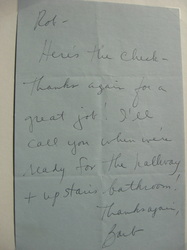 Rob -
Here's the check -
Thanks again for a
great job! I'll
call you when we're
ready for the hallway
+ upstairs bathroom!
Thanks again,
Barb